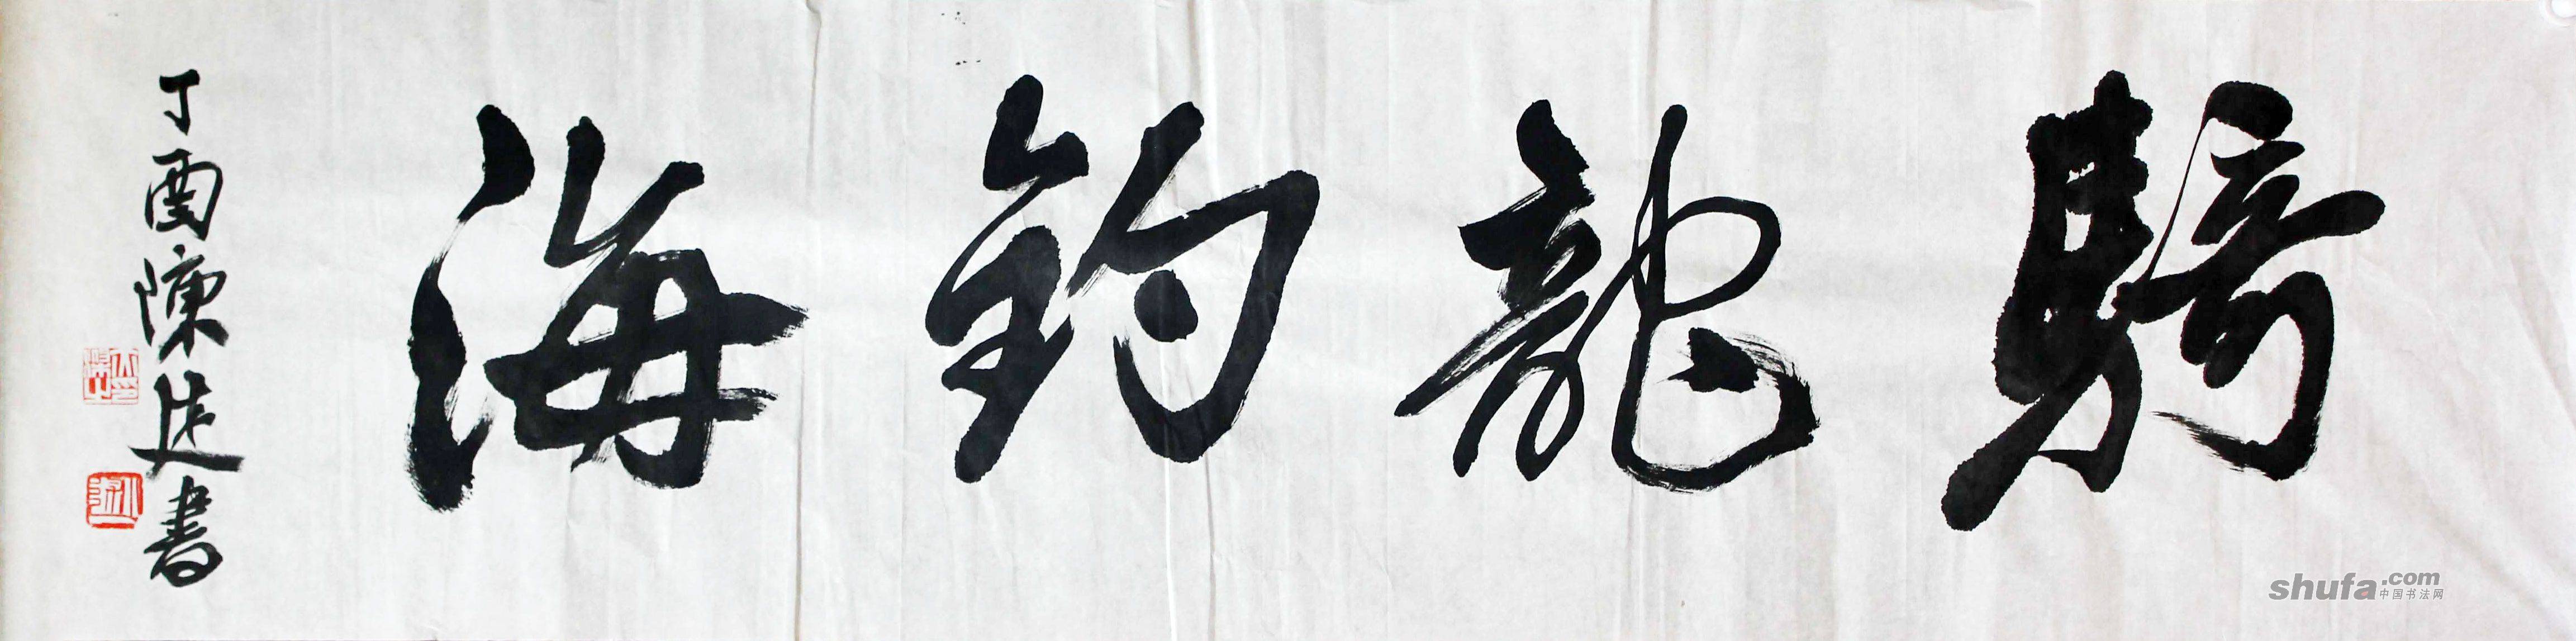 騎龍釣海
丁酉陳延書
shufa.com
中国书法网